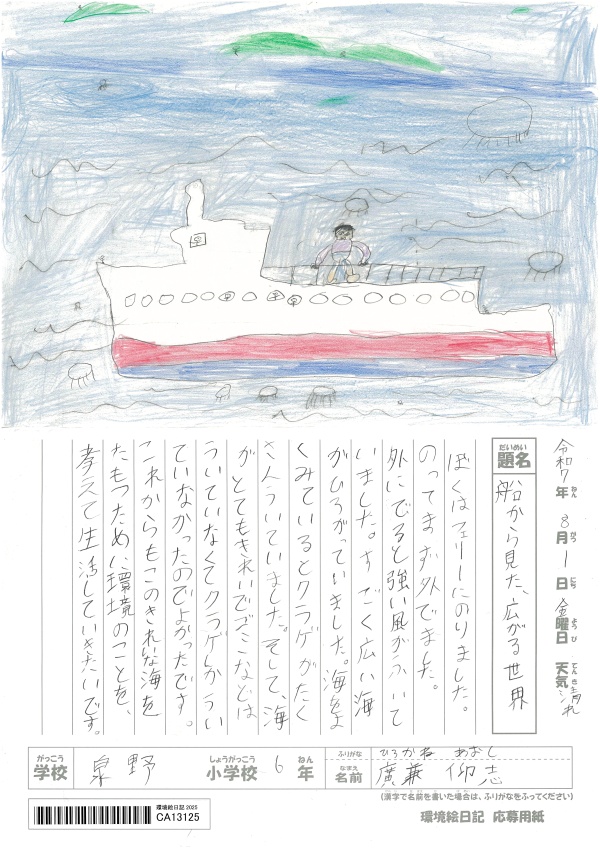 令和7年 8月 1日 金曜日 天気 晴れ
題名 船から見た、広がる世界
ぼくはフェリーにのりました。
のってまず外でました。
外にでると強い風がふいて
いました。すごく広い海
がひろがっていました。海をよ
くみているとクラゲがたく
さんういていました。そして、海
がとてもきれいでゴミなどは
ういていなくてクラゲしかうい
ていなかったのでよかったです。
これからもこのきれいな海を
たもつために環境のことを、
考えて生活していきたいです。
がっこう しょうがっこう ねん
学校 泉野 小学校 6年
ふりがな ひろかね あおし
なまえ
名前 廣兼 仰志
(漢字で名前を書いた場合は、ふりがなをふってください)
環境絵日記 2025
CA13125
環境絵日記 応募用紙